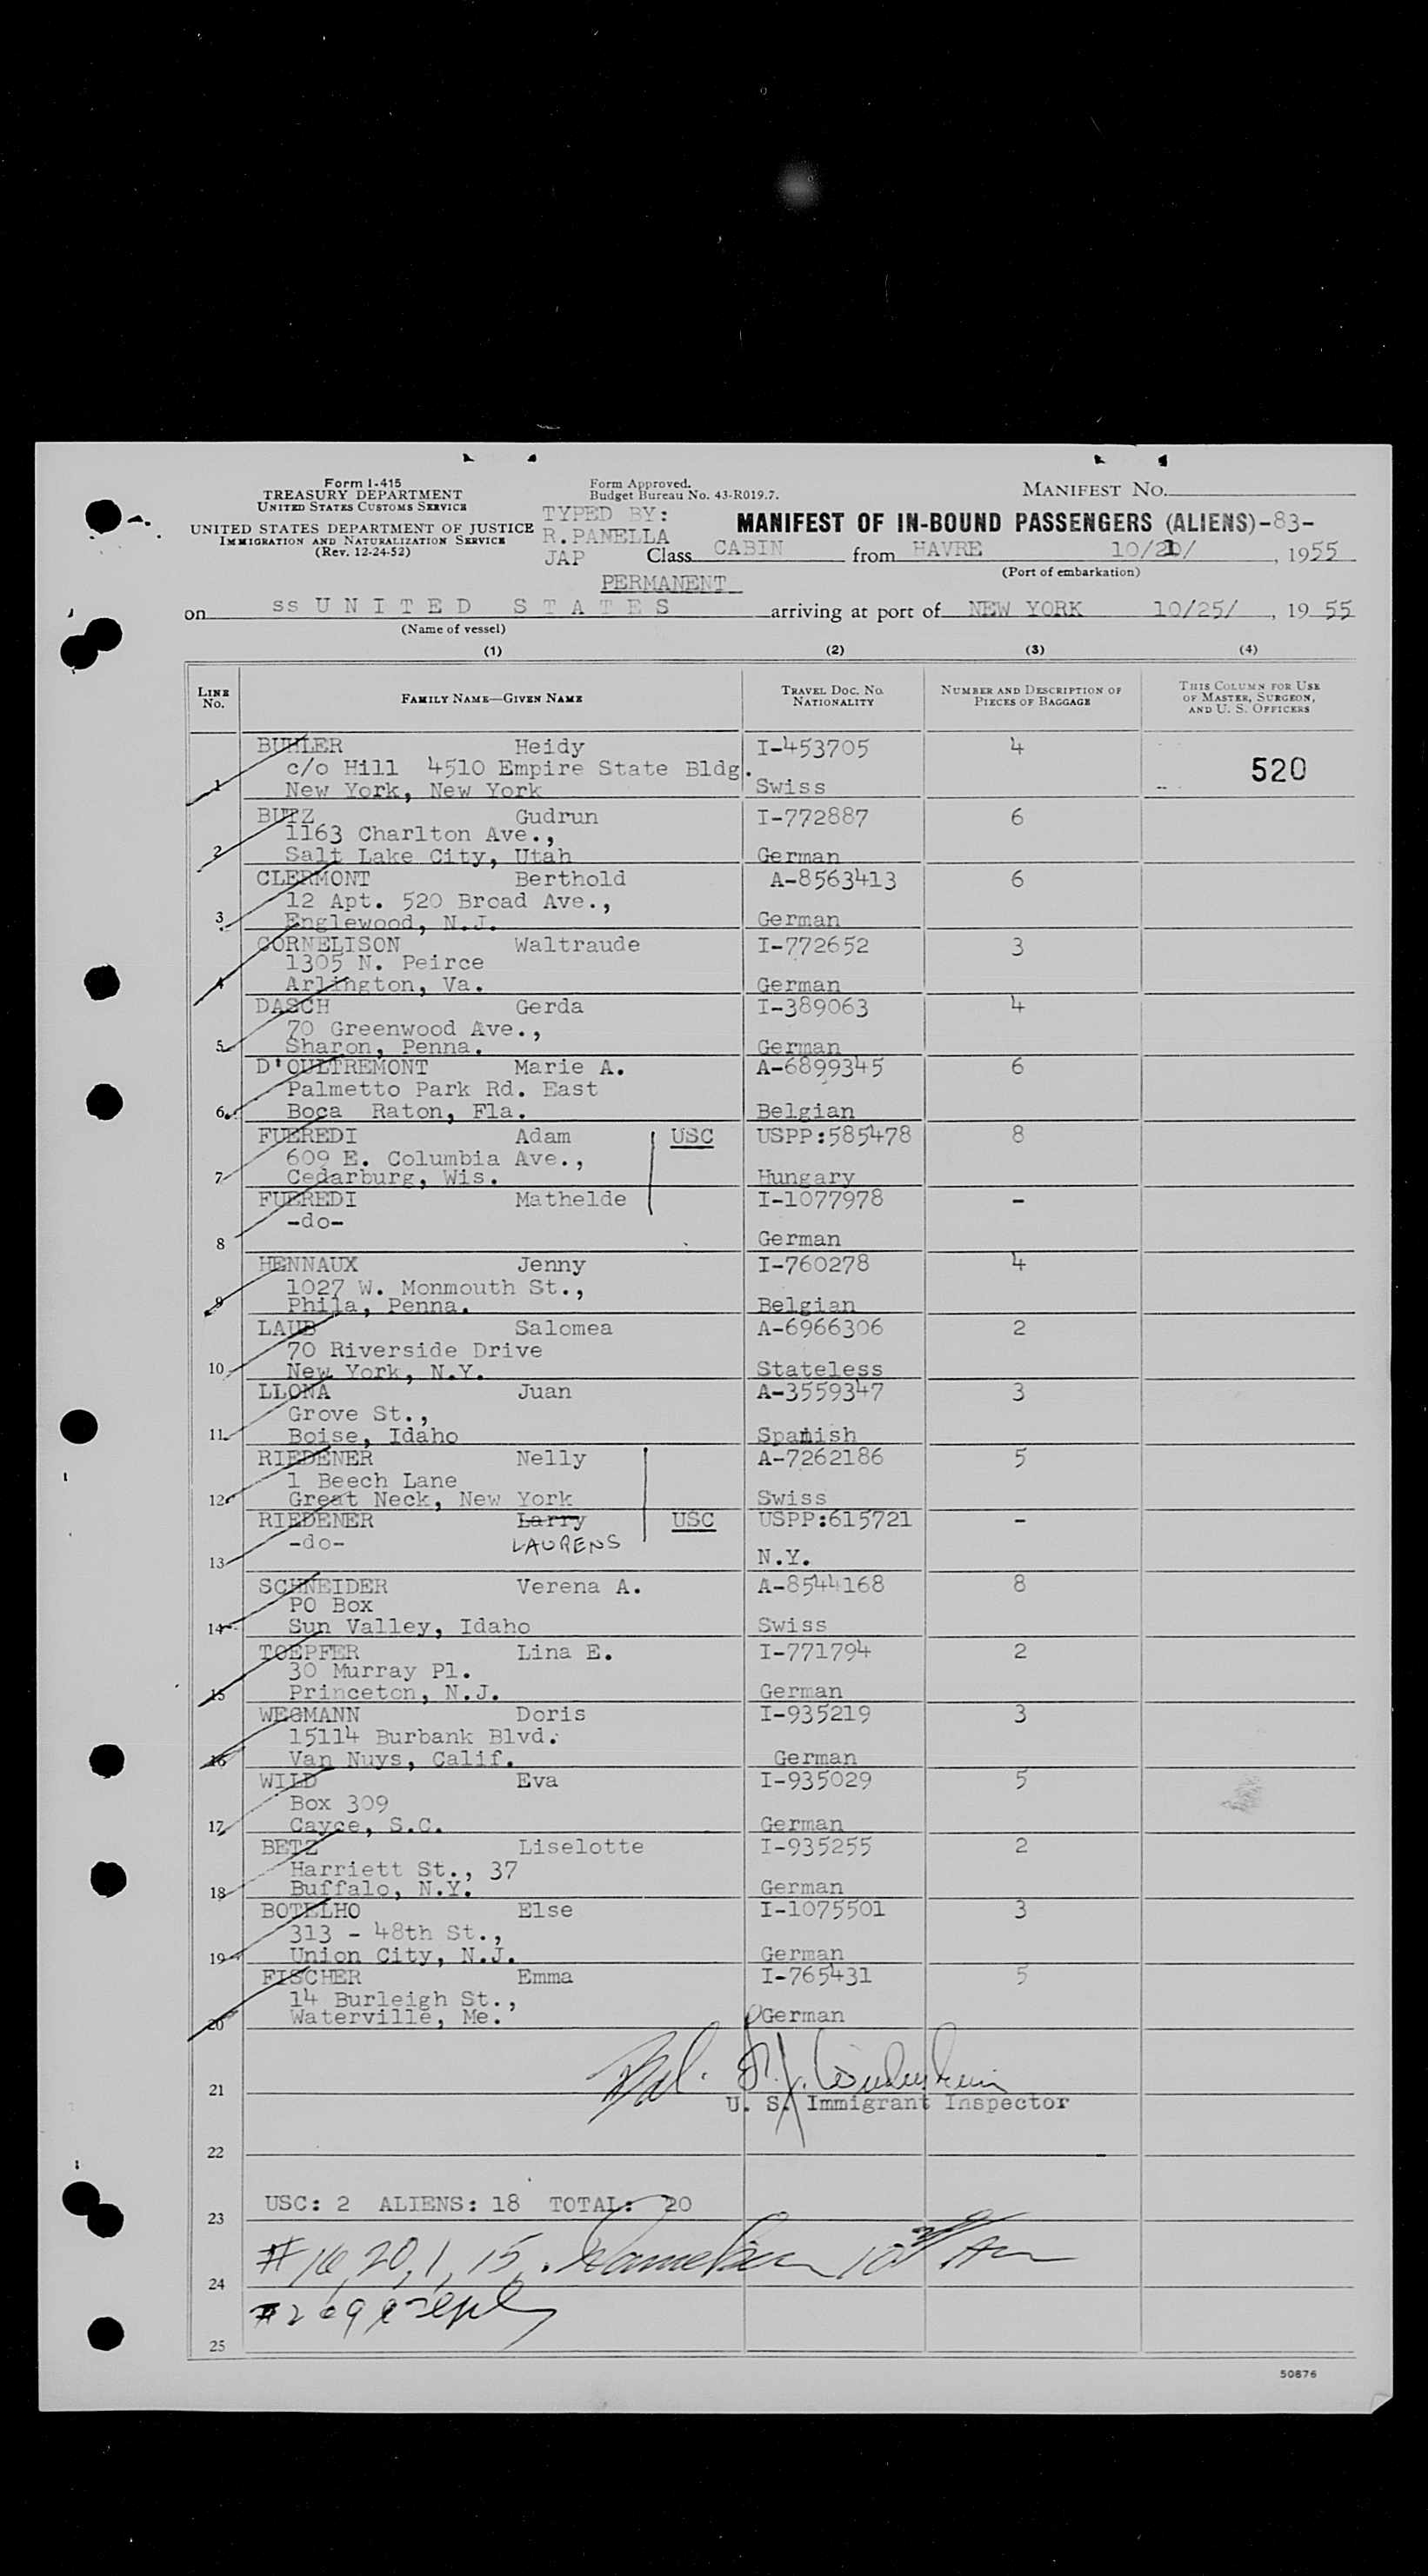 Form I-415
TREASURY DEPARTMENT
UNITED STATES CUSTOMS SERVICE
UNITED STATES DEPARTMENT OF JUSTICE
IMMIGRATION AND NATURALIZATION SERVICE
(Rev. 12-24-52)
Form Approved.
Budget Bureau No. 43-R019.7.
TYPED BY:
R.PANELLA
JAP
MANIFEST NO.
MANIFEST OF IN-BOUND PASSENGERS (ALIENS)-83-
Class CABIN from HAVRE 10/20/, 1955
(Port of embarkation)
PERMANENT
on ss U N I T E D S T A T E S arriving at port of NEW YORK 10/25/, 19 55
(Name of vessel)
(1) (2) (3) (4)
LINE NO. FAMILY NAME—GIVEN NAME TRAVEL DOC. NO. NATIONALITY NUMBER AND DESCRIPTION OF PIECES OF BAGGAGE THIS COLUMN FOR USE OF MASTER, SURGEON, AND U. S. OFFICERS
BUHLER Heidy I-453705 4
c/o Hill 4510 Empire State Bldg. 520
1 New York, New York Swiss
BUTZ Gudrun I-772887 6
1163 Charlton Ave.,
2 Salt Lake City, Utah German
CLERMONT Berthold A-8563413 6
12 Apt. 520 Broad Ave.,
3 Englewood, N.J. German
CORNELISON Waltraude I-772652 3
1305 N. Peirce
4 Arlington, Va. German
DASCH Gerda I-389063 4
70 Greenwood Ave.,
5 Sharon, Penna. German
D'OULTREMONT Marie A. A-6899345 6
Palmetto Park Rd. East
6 Boca Raton, Fla. Belgian
FUEREDI Adam USC USPP:585478 8
609 E. Columbia Ave.,
7 Cedarburg, Wis. Hungary
FUEREDI Mathelde I-1077978 -
-do-
8 German
HENNAUX Jenny I-760278 4
1027 W. Monmouth St.,
9 Phila, Penna. Belgian
LAUB Salomea A-6966306 2
70 Riverside Drive
10 New York, N.Y. Stateless
LLONA Juan A-3559347 3
Grove St.,
11 Boise, Idaho Spanish
RIEDENER Nelly A-7262186 5
1 Beech Lane
12 Great Neck, New York Swiss
RIEDENER Larry USC USPP:615721 -
-do- LAURENS
13 N.Y.
SCHNEIDER Verena A. A-8544168 8
PO Box
14 Sun Valley, Idaho Swiss
TOEPFER Lina E. I-771794 2
30 Murray Pl.
15 Princeton, N.J. German
WEGMANN Doris I-935219 3
15114 Burbank Blvd.
16 Van Nuys, Calif. German
WILD Eva I-935029 5
Box 309
17 Cayce, S.C. German
BETZ Liselotte I-935255 2
Harriett St., 37
18 Buffalo, N.Y. German
BOTELHO Else I-1075501 3
313 - 48th St.,
19 Union City, N.J. German
FISCHER Emma I-765431 5
14 Burleigh St.,
20 Waterville, Me. German
21
U. S. Immigrant Inspector
22
USC: 2 ALIENS: 18 TOTAL: 20
23
#16, 20, 1, 15,
24
25
50876